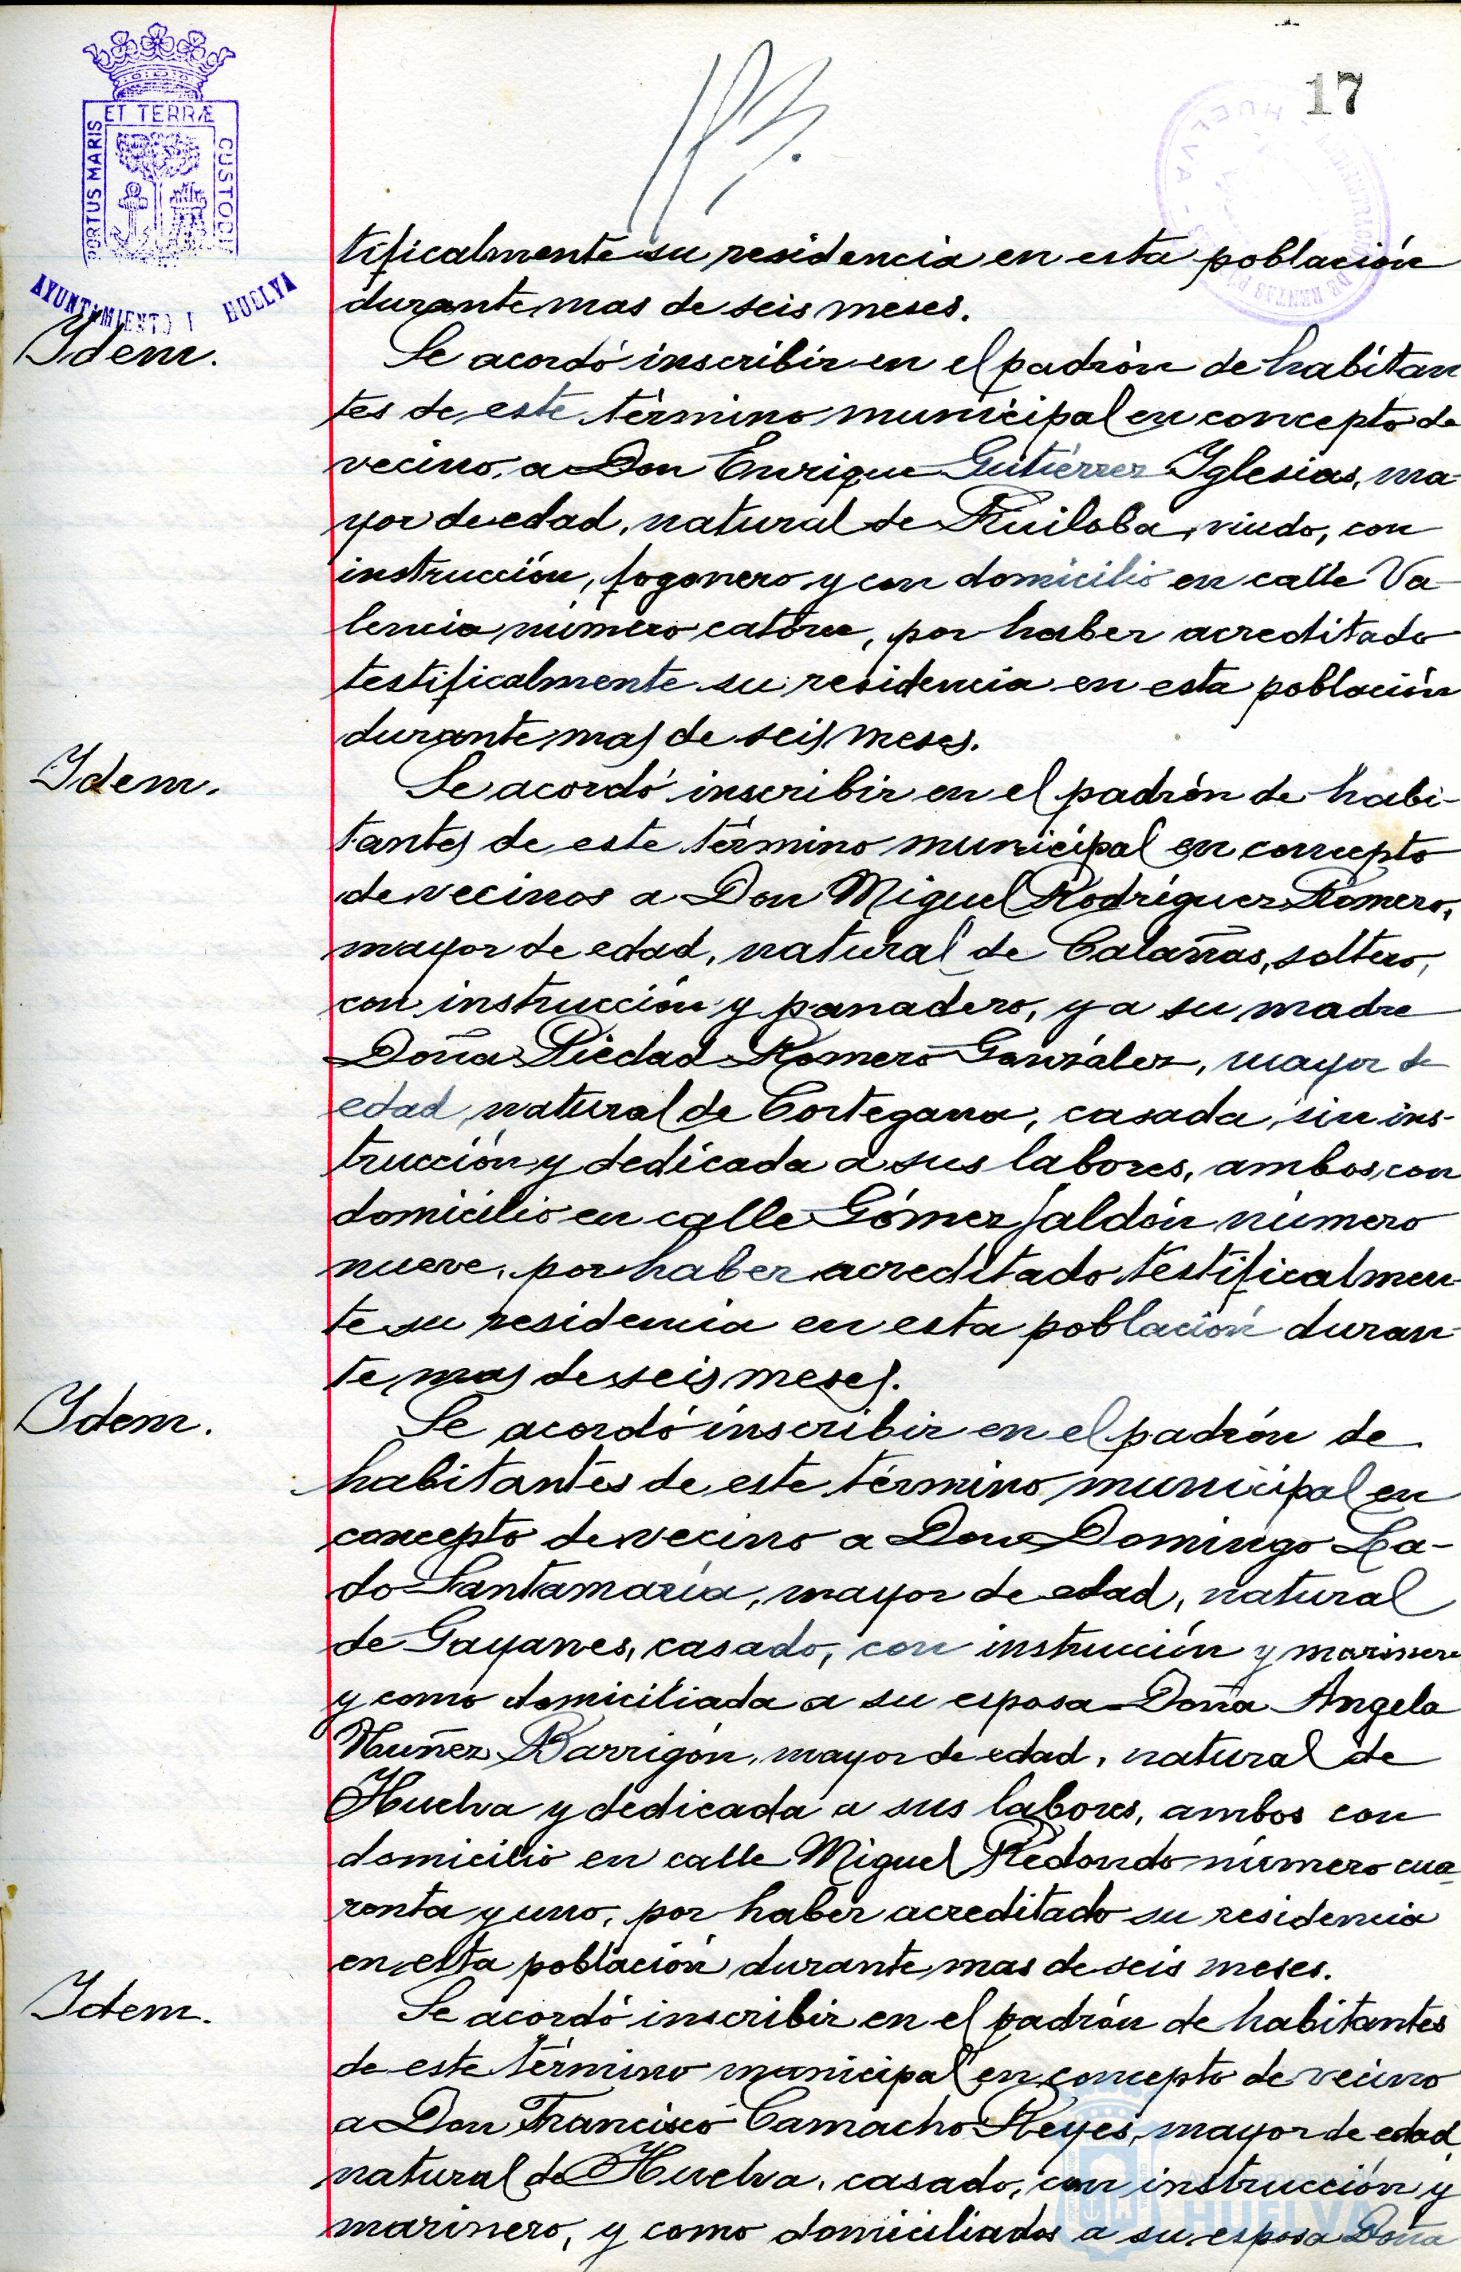 17
ET TERRÆ
PORTUS MARIS
CUSTODIA
AYUNTAMIENTO HUELVA
tificalmente su residencia en esta población
durante mas de seis meses.
Idem.
Se acordó inscribir en el padrón de habitan
tes de este término municipal en concepto de
vecino, a Don Enrique Gutiérrez Iglesias, ma
yor de edad, natural de Ruiloba, viudo, con
instrucción, fogonero y con domicilio en calle Va-
lencia número catorce, por haber acreditado
testificalmente su residencia en esta población
durante mas de seis meses.
Idem.
Se acordó inscribir en el padrón de habi-
tantes de este término municipal en concepto
de vecinos a Don Miguel Rodríguez Romero,
mayor de edad, natural de Calañas, soltero,
con instrucción y panadero, y a su madre
Doña Piedad Romero González, mayor de
edad, natural de Cortegana, casada, sin ins-
trucción y dedicada a sus labores, ambos con
domicilio en calle Gómez Jaldón número
nueve, por haber acreditado testificalmen-
te su residencia en esta población duran-
te mas de seis meses.
Idem.
Se acordó inscribir en el padrón de
habitantes de este término municipal en
concepto de vecino a Don Domingo La-
do Santamaría, mayor de edad, natural
de Gayanes, casado, con instrucción y marinero
y como domiciliada a su esposa Doña Angela
Nuñez Barrigón, mayor de edad, natural de
Huelva y dedicada a sus labores, ambos con
domicilio en calle Miguel Redondo número cua
renta y uno, por haber acreditado su residencia
en esta población durante mas de seis meses.
Idem.
Se acordó inscribir en el padrón de habitantes
de este término municipal en concepto de vecino
a Don Francisco Camacho Reyes, mayor de edad,
natural de Huelva, casado, con instrucción y
marinero, y como domiciliados a su esposa Doña
Ayuntamiento de
HUELVA